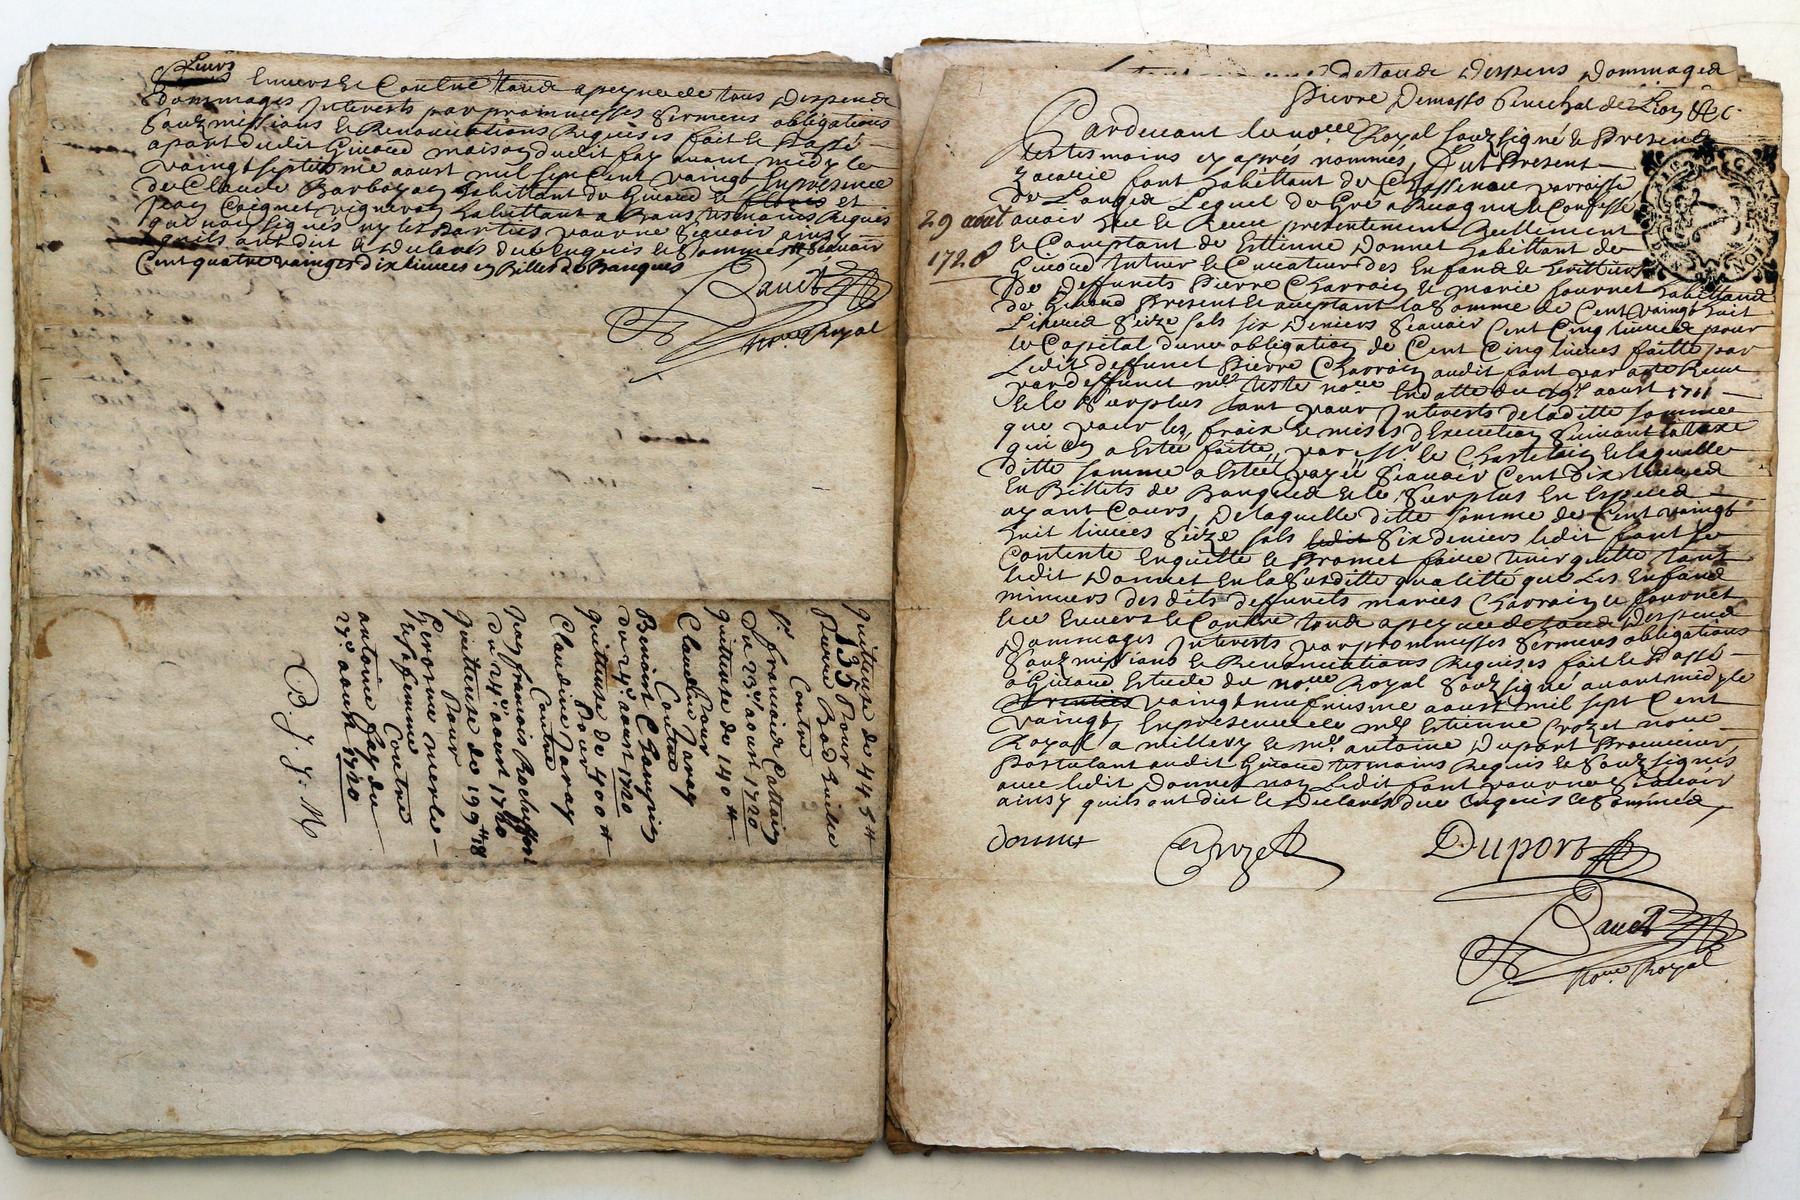 Leurs
Envers Et Contre toutte a peyne de tous Despends
Dommages Interests par promnesses Sermens obligations
Soubzmissions Et Renonciations Requises fait Et Passé
apart dudit Givord maison dudit fay avant midy le
vaingt septiesme aoust mil sept Cent vaingt En presence
de Claude Barboyat habittant de Givord Et et
Jean Coignet vigneron habittant a tesmoins Requis
qui nont signés ny les Parties pour ne Scavoir ainsy
quils ont dit Et Declarés düe Enquis Et Sommés Scavoir
Cent quatre vaingts dix livres en Billets de Banques
Bauet
nore Royal
Quittense de 445 tt
135 Pour
Pierre
Contre
Sr. francois
Du 23e aoust 1720
Quittense de 140 tt
Pour
Claudine Jaray
Contre
Benoist Champin
du 24e aoust 1720
Quittense de 400 tt
Pour
Claudine Jaray
Contre
Jean francois Rochefort
du 24e aoust 1720
Quittense de 199 tt 18
Pour
Gerosme merle
Sa femme Contre
antoine fay du
27e aoust 1720
B. J. J. N
de toutte Despens Dommages
Pierre Demasso Senechal de Lion &c.
Pardevant le nore Royal soubzsigné Et Presents
les tesmoins cy aprés nommés, fut Present
Zacarie font habittant de Chassenou parroisse
de Longes Lequel de Gré a Recogneu Et Confessé
29 aout
1720
avoir heu Et Receu presentement Reellement
Et Comptant de Estienne Donnet habittant de
Givord tuteur Et Curateur des Enfands Et herittiers
de deffunts Pierre Charrain Et marie fournet habittand
de Givord Present Et aceptant la Somme de Cent vaingt huit
Livres Seize sols six Deniers Scavoir Cent Cinq livres pour
le Capital dune obligation de Cent Cinq livres faitte par
Ledit deffunct Pierre Charrain audit font par acte Receu
par deffunct me teste nore En datte du aoust 1711
Et le Surplus tant pour Interests de laditte somme
que pour les fraix Et mises dExecution Suivant la taxe
qui en a Esté faitte par Mr. le Chastelain Et laquelle
ditte somme a Esté payéé Scavoir Cent Dix livres
En Billets de Banques Et le Surplus En Especes
ayant Cours, De laquelle ditte somme de Cent vaingt
huit livres Seize sols ledit Six deniers ledit font Se
Contente Enquitte Et Promet faire tenir quitte tant
ledit Donnet En la Susditte qualitté que les Enfand
mineurs des dits deffunts mariés Charrain Et fournet
Envers Et Contre toute a peyne de tous Despend
Dommages Interests par promnesses Sermens obligations
Soubzmissions Et Renonciations Requises fait Et Passé
a Givord Estude du nore Royal Soubzsigné avant midy le
vaingt neufviesme aoust mil sept Cent
vaingt, En presence de me Estienne Crozet nore
Royal a millery Et me antoine Duport Procureur
Postulant audit Givord tesmoins Requis Et Soubzsignés
avec ledit Donnet non Ledit font pour ne Scavoir
ainsy quils ont dit Et Declarés düe Enquis Et Sommés
donnet
Crozet
Duport
Bauet
nore Royal